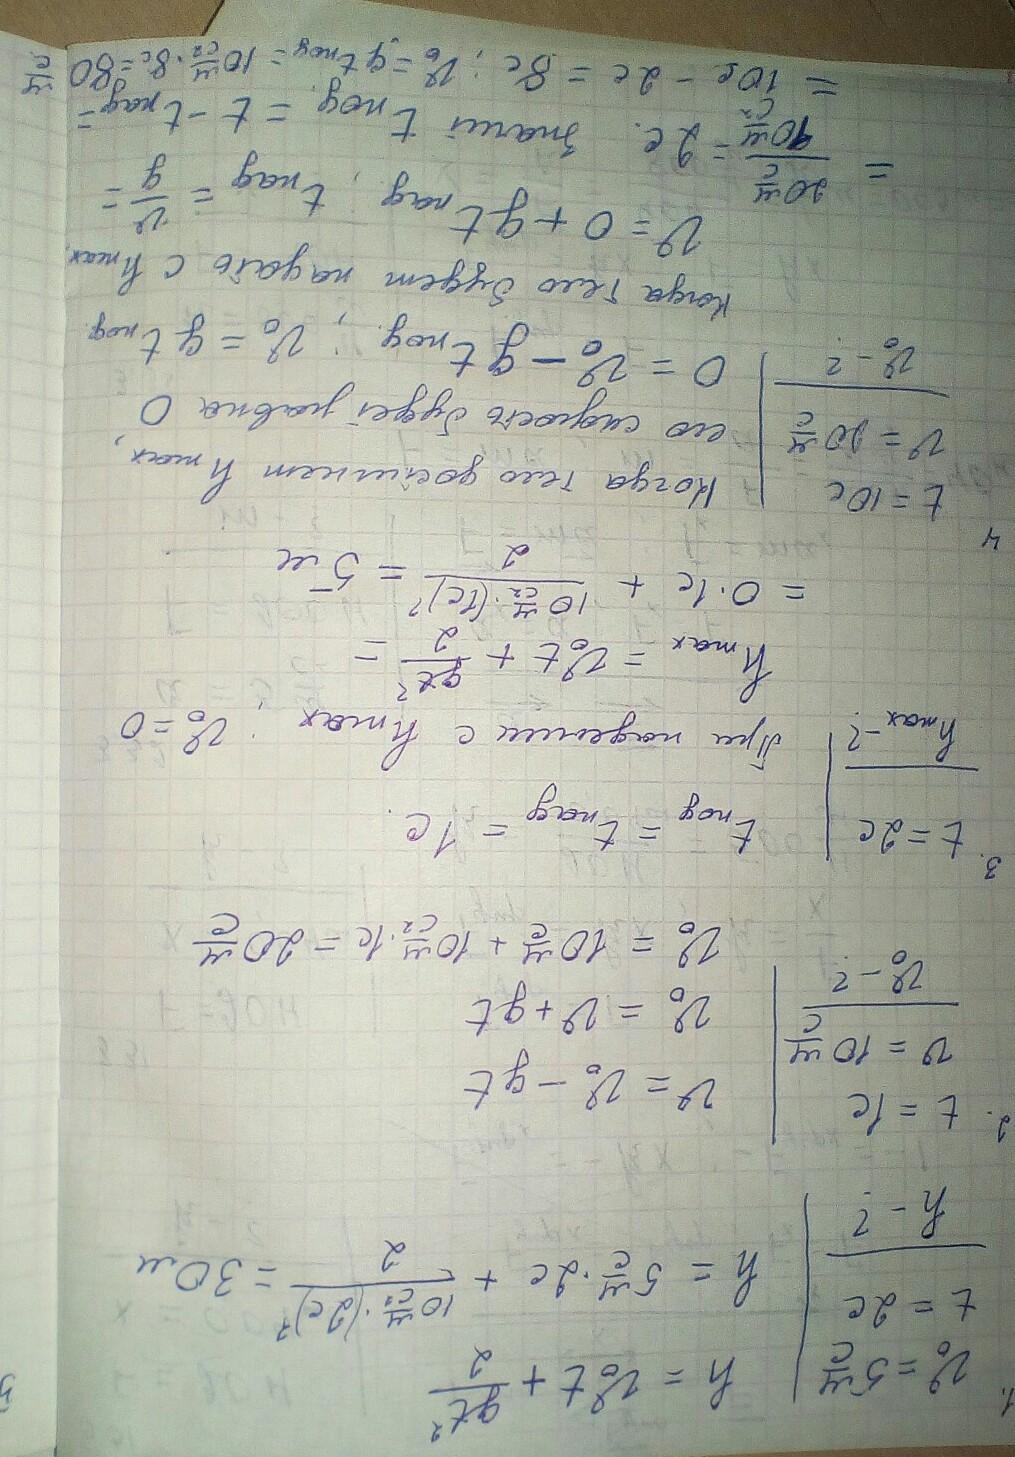 1.
v₀ = 5 м/с
t = 2с
h - ?
h = v₀t + gt²/2
h = 5 м/с · 2с + 10 м/с² · (2с)²/2 = 30 м
2.
t = 1с
v = 10 м/с
v₀ - ?
v = v₀ - gt
v₀ = v + gt
v₀ = 10 м/с + 10 м/с² · 1с = 20 м/с
3.
t = 2с
hmax - ?
tпод = tпад = 1с.
При падении с hmax ; v₀ = 0
hmax = v₀t + gt²/2 =
= 0·1с + 10 м/с² · (1с)²/2 = 5 м
4
t = 10с
v = 20 м/с
v₀ - ?
Когда тело достигнет hmax,
его скорость будет равна 0
0 = v₀ - gtпод. ; v₀ = gtпод.
Когда тело будет падать с hmax,
v = 0 + gtпад ; tпад = v/g =
= 20 м/с / 10 м/с² = 2с. Значит tпод. = t - tпад =
= 10с - 2с = 8с ; v₀ = gtпод = 10 м/с² · 8с = 80 м/с